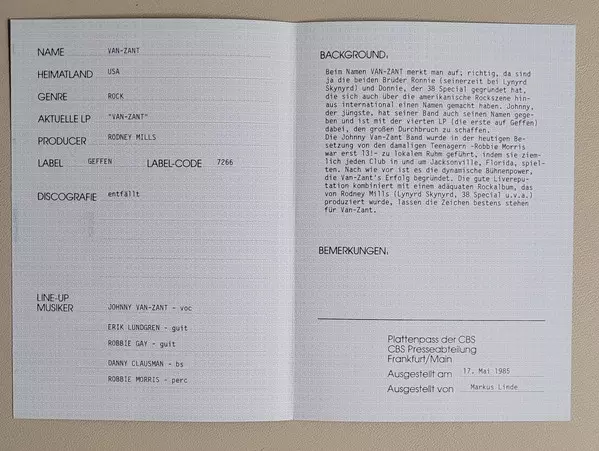 NAME VAN-ZANT
HEIMATLAND USA
GENRE ROCK
AKTUELLE LP "VAN-ZANT"
PRODUCER RODNEY MILLS
LABEL GEFFEN LABEL-CODE 7266
DISCOGRAFIE entfällt
LINE-UP
MUSIKER JOHNNY VAN-ZANT - voc
ERIK LUNDGREN - guit
ROBBIE GAY - guit
DANNY CLAUSMAN - bs
ROBBIE MORRIS - perc
BACKGROUND:
Beim Namen VAN-ZANT merkt man auf; richtig, da sind
ja die beiden Brüder Ronnie (seinerzeit bei Lynyrd
Skynyrd) und Donnie, der 38 Special gegründet hat,
die sich auch über die amerikanische Rockszene hin-
aus international einen Namen gemacht haben. Johnny,
der jüngste, hat seiner Band auch seinen Namen gege-
ben und ist mit der vierten LP (die erste auf Geffen)
dabei, den großen Durchbruch zu schaffen.
Die Johnny Van Zant Band wurde in der heutigen Be-
setzung von den damaligen Teenagern -Robbie Morris
war erst 13!- zu lokalem Ruhm geführt, indem sie ziem-
lich jeden Club in und um Jacksonville, Florida, spiel-
ten. Nach wie vor ist es die dynamische Bühnenpower,
die Van-Zant's Erfolg begründet. Die gute Liverepu-
tation kombiniert mit einem adäquaten Rockalbum, das
von Rodney Mills (Lynyrd Skynyrd, 38 Special u.v.a.)
produziert wurde, lassen die Zeichen bestens stehen
für Van-Zant.
BEMERKUNGEN:
Plattenpass der CBS
CBS Presseabteilung
Frankfurt/Main
Ausgestellt am 17. Mai 1985
Ausgestellt von Markus Linde